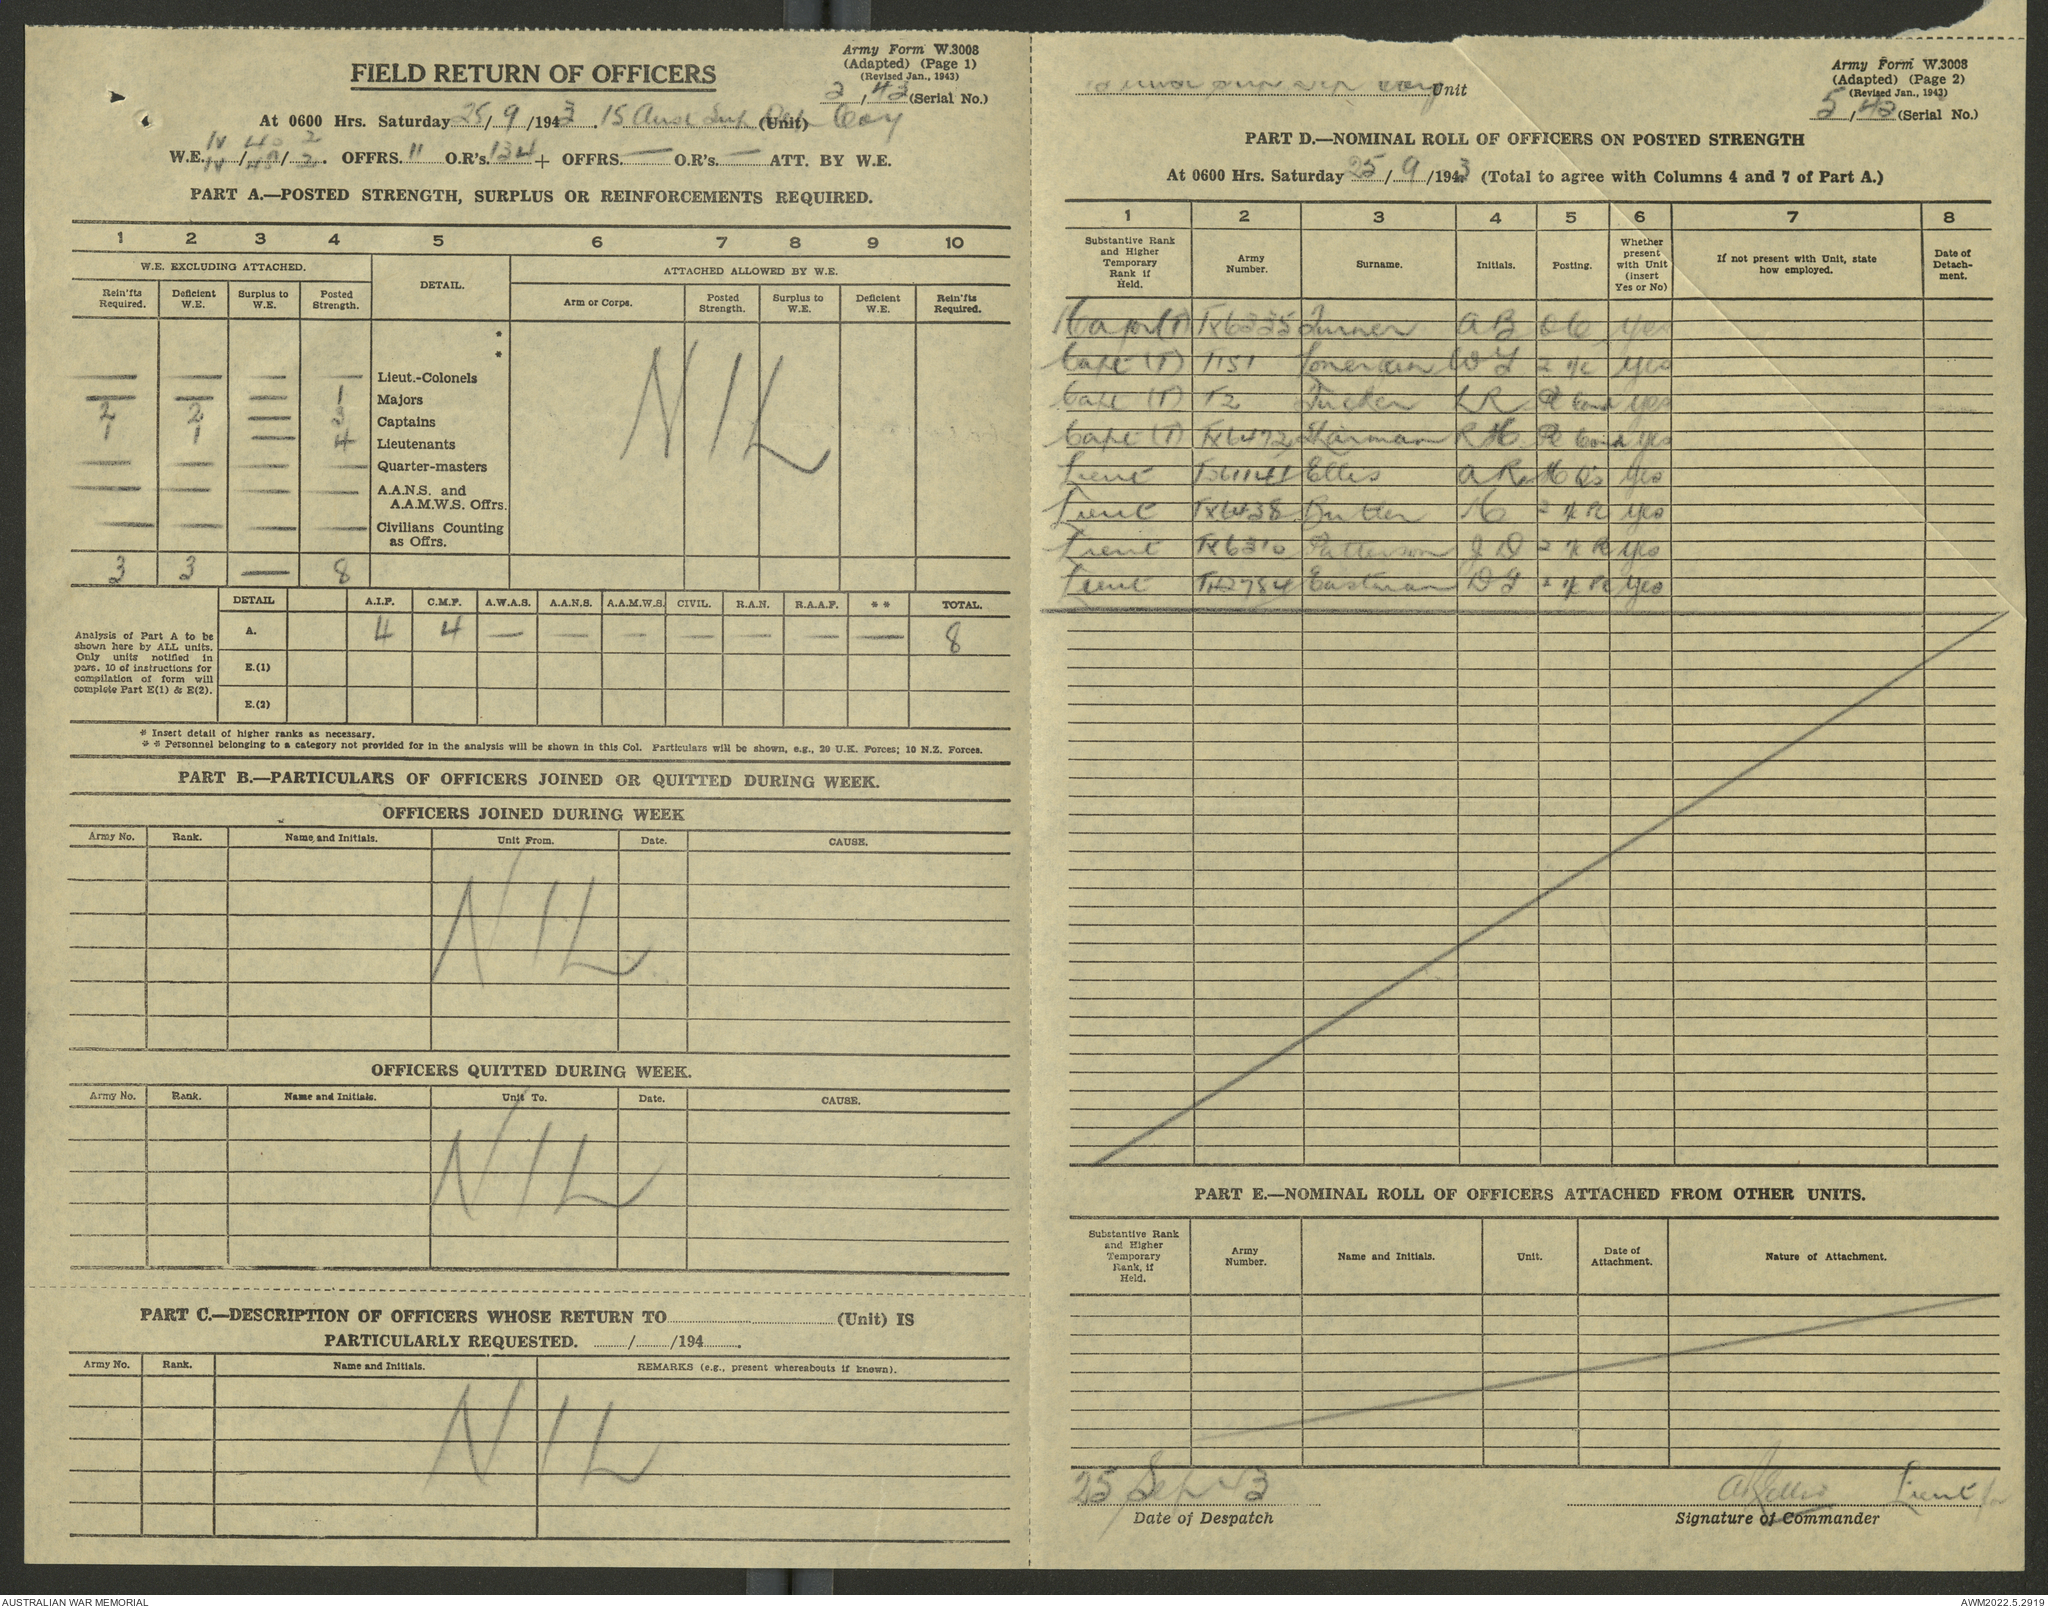 Army Form W.3008
(Adapted) (Page 1)
(Revised Jan., 1943)
FIELD RETURN OF OFFICERS
2, 43 (Serial No.)
At 0600 Hrs. Saturday 25/9/1943. 15 Aust Sup Dep Coy (Unit)
IV 40 2
W.E. IV/40/2. OFFRS. 11 O.R's. 134 + OFFRS. — O.R's. — ATT. BY W.E.
PART A.—POSTED STRENGTH, SURPLUS OR REINFORCEMENTS REQUIRED.
1 2 3 4 5 6 7 8 9 10
W.E. EXCLUDING ATTACHED. DETAIL. ATTACHED ALLOWED BY W.E.
Rein'fts Required. Deficient W.E. Surplus to W.E. Posted Strength. Arm or Corps. Posted Strength. Surplus to W.E. Deficient W.E. Rein'fts Required.
*
*
— — — — Lieut.-Colonels
— — — 1 Majors
2 2 — 3 Captains
1 1 — 4 Lieutenants
— — — — Quarter-masters
— — — — A.A.N.S. and A.A.M.W.S. Offrs.
— — — — Civilians Counting as Offrs.
NIL
3 3 — 8
DETAIL A.I.F. C.M.F. A.W.A.S. A.A.N.S. A.A.M.W.S. CIVIL. R.A.N. R.A.A.F. ** TOTAL.
A. 4 4 — — — — — — — 8
E.(1)
E.(2)
Analysis of Part A to be
shown here by ALL units.
Only units notified in
para. 10 of instructions for
compilation of form will
complete Part E(1) & E(2).
* Insert detail of higher ranks as necessary.
** Personnel belonging to a category not provided for in the analysis will be shown in this Col. Particulars will be shown, e.g., 20 U.K. Forces; 10 N.Z. Forces.
PART B.—PARTICULARS OF OFFICERS JOINED OR QUITTED DURING WEEK.
OFFICERS JOINED DURING WEEK
Army No. Rank. Name and Initials. Unit From. Date. CAUSE.
NIL
OFFICERS QUITTED DURING WEEK.
Army No. Rank. Name and Initials. Unit To. Date. CAUSE.
NIL
PART C.—DESCRIPTION OF OFFICERS WHOSE RETURN TO (Unit) IS
PARTICULARLY REQUESTED. / /194 .
Army No. Rank. Name and Initials. REMARKS (e.g., present whereabouts if known).
NIL
Army Form W.3008
(Adapted) (Page 2)
(Revised Jan., 1943)
Unit
5, 43 (Serial No.)
PART D.—NOMINAL ROLL OF OFFICERS ON POSTED STRENGTH
At 0600 Hrs. Saturday 25/9/1943 (Total to agree with Columns 4 and 7 of Part A.)
1 2 3 4 5 6 7 8
Substantive Rank and Higher Temporary Rank if Held. Army Number. Surname. Initials. Posting. Whether present with Unit (insert Yes or No) If not present with Unit, state how employed. Date of Detachment.
(T) TX6335 Turner A B O C yes
Capt (T) T151 Lonergan W 2 i/c yes
Capt (T) T2 Tucker L R Pl Comd yes
Capt (T) TX6472 Harman R H Pl Comd yes
Lieut Ellis A R H Qs yes
Lieut TX6438 Butler H 2 i/c Pl yes
Lieut TX6310 Patterson J D 2 i/c Pl yes
Lieut Eastman D 2 i/c Pl yes
PART E.—NOMINAL ROLL OF OFFICERS ATTACHED FROM OTHER UNITS.
Substantive Rank and Higher Temporary Rank, if Held. Army Number. Name and Initials. Unit. Date of Attachment. Nature of Attachment.
25 Sep 43 A R Ellis Lieut for
Date of Despatch Signature of Commander
AUSTRALIAN WAR MEMORIAL AWM2022.5.2919